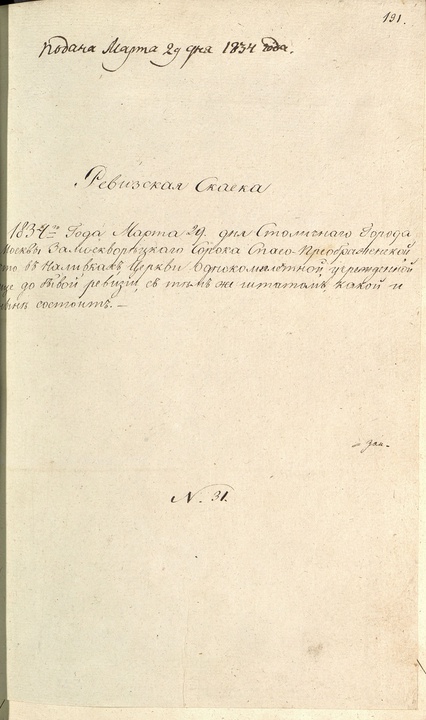 191.
Подана Марта 29 дня 1834 года.
Ревизская Сказка
1834го Года Марта 29. дня Столичнаго Города
Москвы Замоскворецкаго Сорока Спасо-Преображенской
что въ Наливкахъ Церкви Однокомплетной, учрежденной
еще до 8ой ревизіи, съ темъ же штатомъ, какой и
ныне состоитъ. —
N. 31.